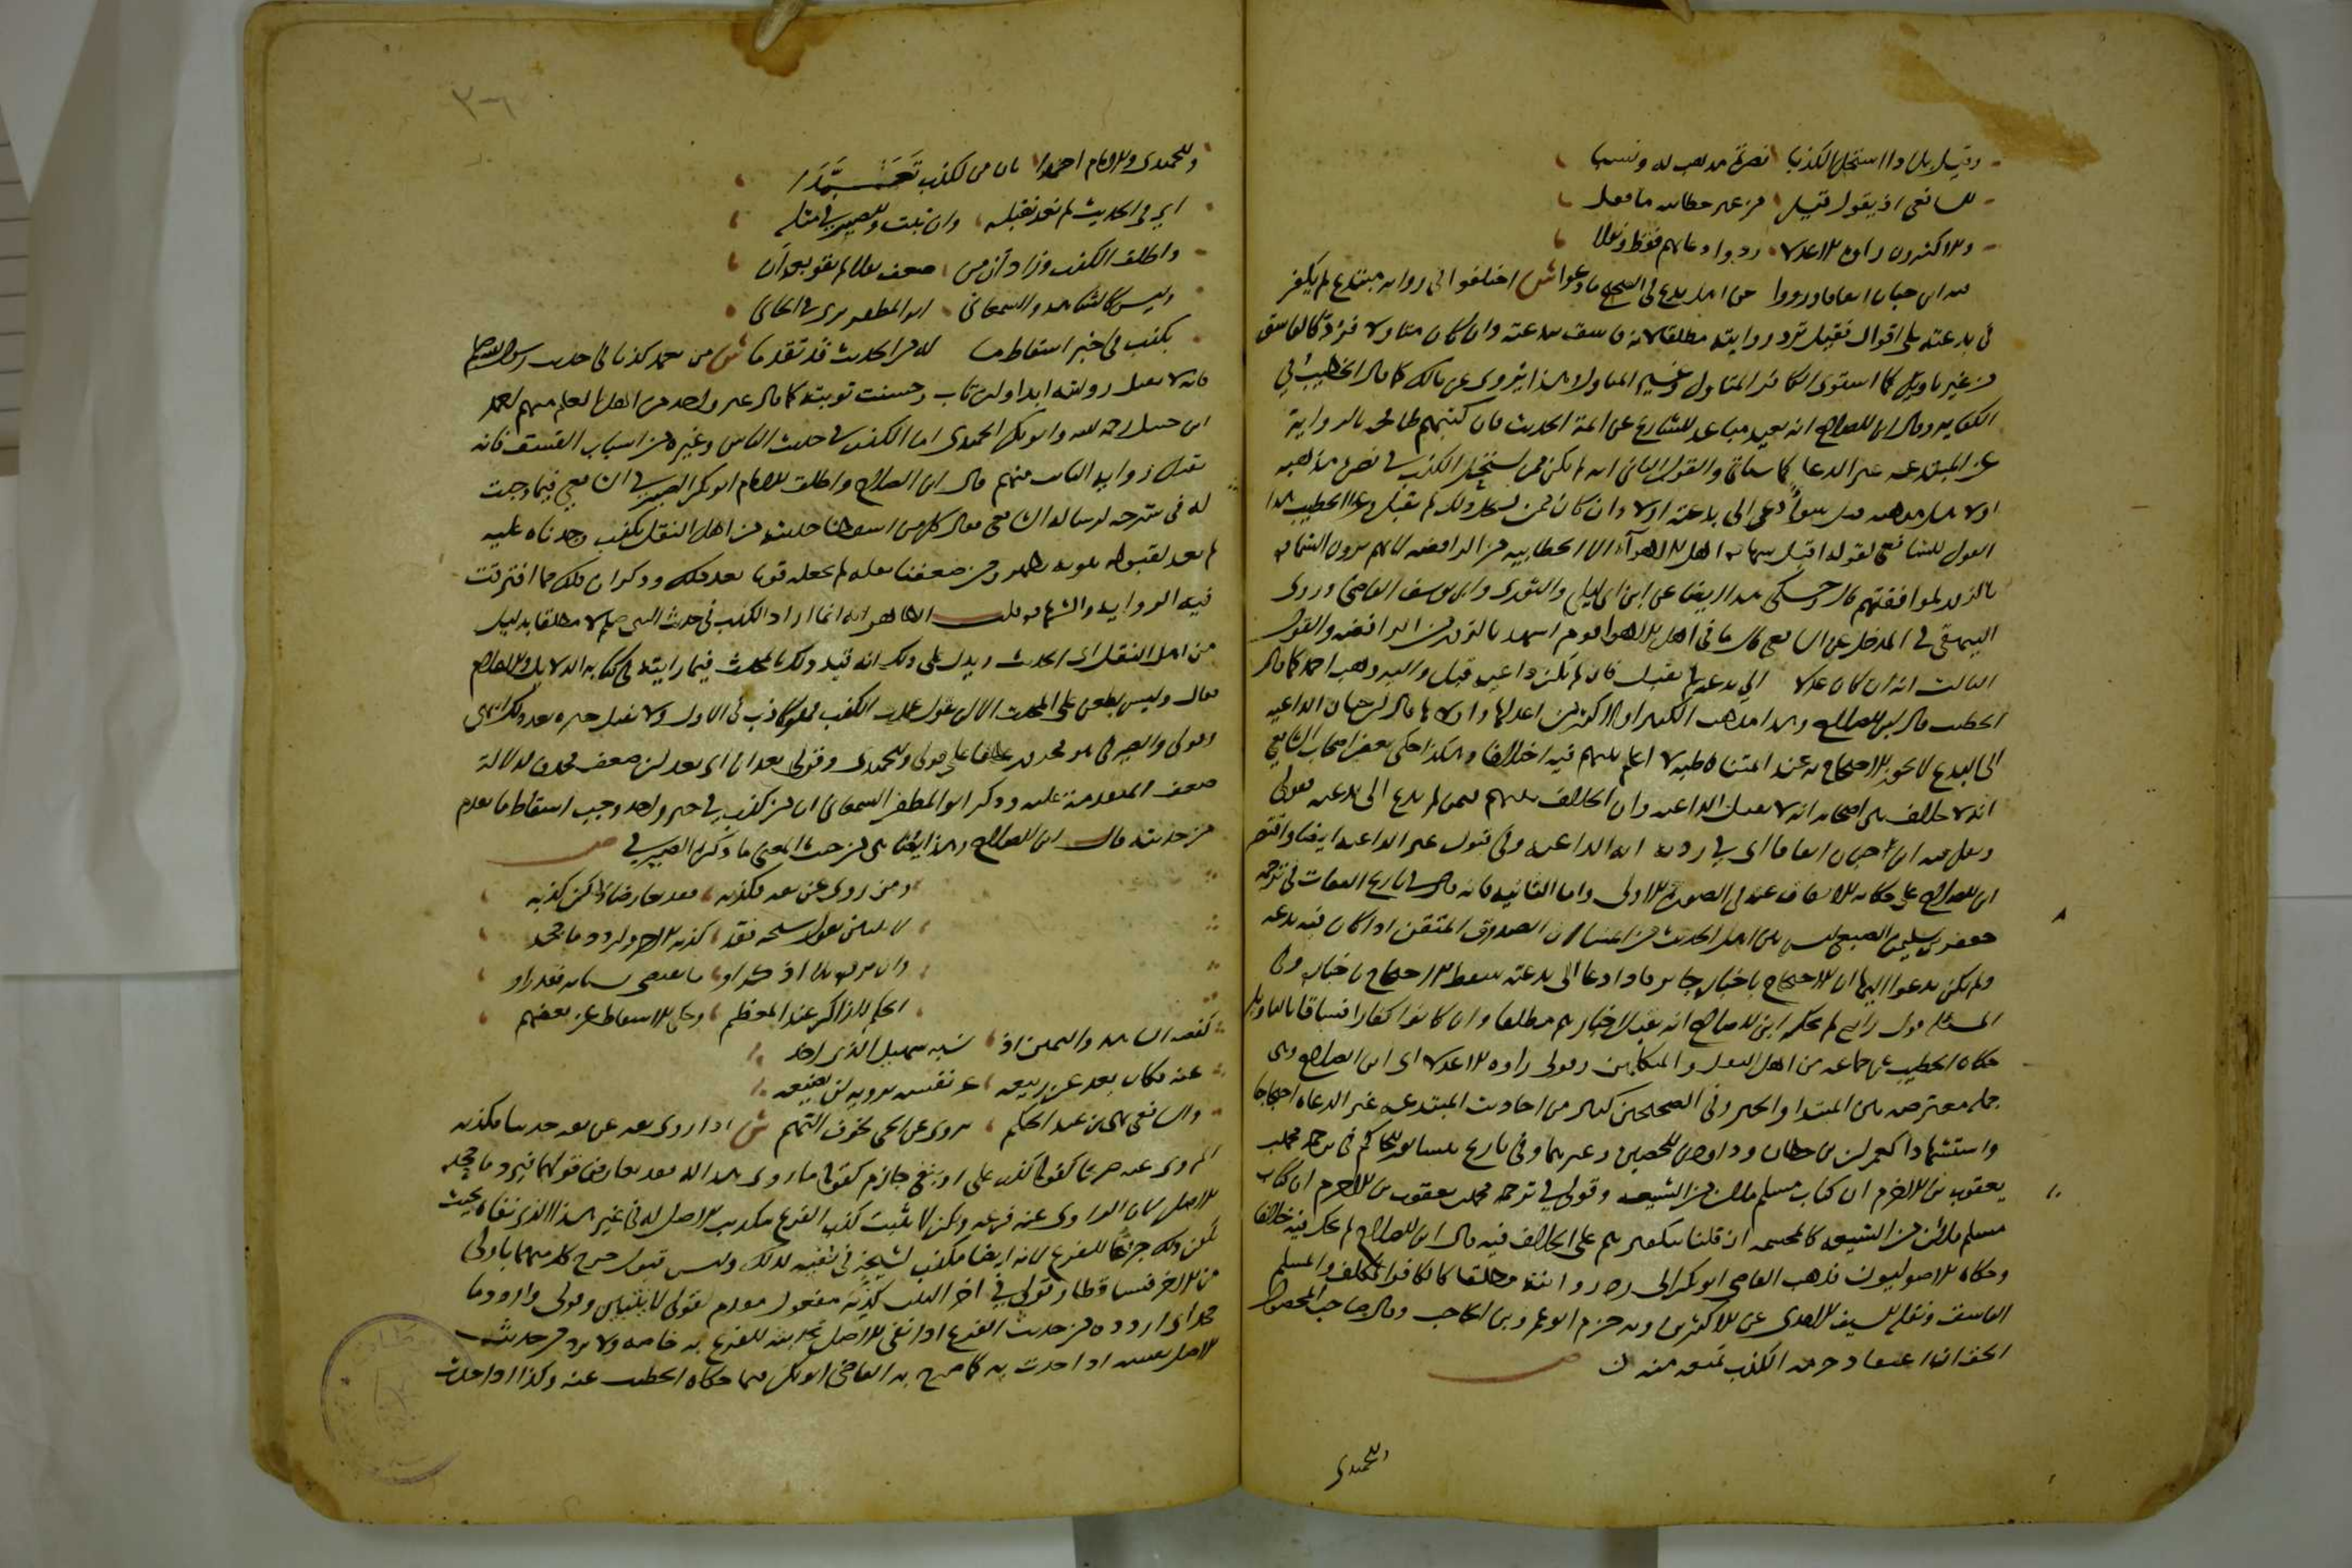 وقيل بل اذا استحل الكذبا نصرة مذهب له ونسبا
للشافعي اذ يقول اقبل من غير خطابية ما نقلوا
والاكثرون رآوه الاعدلا ردوا دعاتهم فقط ونقلا
فيه ابن حبان اتفاقا ورووا عن اهل بدع في الصحيح ما دعوا ش اختلفوا في رواية مبتدع لم يكفر
في بدعته على اقوال فقيل ترد روايته مطلقا لانه فاسق ببدعته وان كان متاولا فيرد كالفاسق
من غير تاويل كما استوى الكافر المتاول وغير المتاول وهذا يروى عن مالك كما قال الخطيب في
الكفاية وقال ابن الصلاح انه بعيد مباعد للشايع عن ائمة الحديث فان كتبهم طافحة بالرواية
عن المبتدعة غير الدعاة كما سياتي والقول الثاني انه ان لم يكن ممن يستحل الكذب في نصرة مذهبه
او لاهل مذهبه قبل سواء دعى الى بدعته او لا وان كان ممن يستحل ذلك لم يقبل وعزا الخطيب هذا
القول للشافعي لقوله اقبل شهادة اهل الاهواء الا الخطابية من الرافضة لانهم يرون الشهادة
بالزور لموافقيهم قال وحكى هذا ايضا عن ابن ابي ليلى والثوري وابي يوسف القاضي وروى
البيهقي في المدخل عن الشافعي قال ما في اهل الاهواء قوم اشهد بالزور من الرافضة والقول
الثالث انه ان كان داعية الى بدعته لم يقبل وان لم يكن داعية قبل واليه ذهب احمد كما قال
الخطيب قال ابن الصلاح وهذا مذهب الكثير او الاكثر وهو اعدلها واولاها قال ابن حبان الداعية
الى البدع لا يجوز الاحتجاج به عند ائمتنا قاطبة لا اعلم بينهم فيه اختلافا وهكذا حكى بعض اصحاب الشافعي
انه لا خلاف بين اصحابه انه لا يقبل الداعية وان الخلاف بينهم فيمن لم يدع الى بدعته فقولي
ونقل فيه ابن حبان اتفاقا اي في رد رواية الداعية وفي قبول غير الداعية ايضا واقتصر
ابن الصلاح على حكاية الاتفاق عنه في الصورة الاولى واما الثانية فانه قال في تاريخ الثقات في ترجمة
جعفر بن سليمان الضبعي ليس بين اهل الحديث من ائمتنا ان الصدوق المتقن اذا كان فيه بدعة
ولم يكن يدعو اليها ان الاحتجاج باخباره جايز فاذا دعا الى بدعته سقط الاحتجاج باخباره وفي
المسئلة قول رابع لم يحكه ابن الصلاح انه يقبل اخبارهم مطلقا وان كانوا كفارا او فساقا بالتاويل
حكاه الخطيب عن جماعة من اهل النقل والمتكلمين وقولي راوه الاعدلا اي ابن الصلاح وهي
جملة معترضة بين المبتدا والخبر وفي الصحيحين كثير من احاديث المبتدعة غير الدعاة احتجاجا
واستشهادا كعمران بن حطان وداود بن الحصين وغيرهما وفي تاريخ نيسابور للحاكم في ترجمة محمد
بن يعقوب بن الاخرم ان كتاب مسلم ملان من الشيعة وقولي في ترجمة محمد بن يعقوب بن الاخرم ان كتاب
مسلم ملان من الشيعة كالمجسمة ان قلنا بتكفيرهم على الخلاف فيه قال ابن الصلاح لم يحك فيه خلافا
وحكاه الاصوليون فذهب القاضي ابو بكر الى رد روايته مطلقا كالكافر المخالف والمسلم
الفاسق ونقله السيف الامدي عن الاكثرين وبه جزم ابو عمرو بن الحاجب وقال صاحب المحصول
الحق انه ان اعتقد حرمة الكذب قبل منه ن
والحميدي
وللحميدي والامام احمدا بان من لكذب تعمدا
اي في الحديث لم نعد نقبله وان يتب والصيرفي مثله
واطلق الكذب وزاد ان من ضعف نقلا لم يقو بعد ان
وليس كالشاهد والسمعاني ابو المظفر يرى في الجاني
بكذب في خبر اسقاط ما له من الحديث قد تقدما ش من تعمد كذبا في حديث رسول الله صلى
فانه لا يقبل روايته ابدا وان تاب وحسنت توبته كما قال غير واحد من اهل العلم منهم احمد
ابن حنبل رحمه الله وابو بكر الحميدي اما الكذب في حديث الناس وغيره من اسباب الفسق فانه
تقبل رواية التائب منهم قال ابن الصلاح واطلق الامام ابو بكر الصيرفي الشافعي فيما وجدت
له في شرحه لرسالة الشافعي فقال كل من اسقطنا حديثه من اهل النقل بكذب وجدناه عليه
لم نعد لقبوله بتوبة تظهر ومن ضعفنا نقله لم نجعله قويا بعد ذلك وذكر ان ذلك مما افترقت
فيه الرواية والشهادة قلت الظاهر انه انما اراد الكذب في حديث النبي صلعم لا مطلقا بدليل قوله
من اهل النقل اي الحديث ويدل على ذلك انه قيد ذلك بالمحدث فيما رايته في كتابه الدلايل والاعلام
فقال وليس يطعن على المحدث الا ان يقول عمدت الكذب فهو كاذب في الاول ولا يقبل خبره بعد ذلك انتهى
وقولي والصيرفي هو مجرور عطفا على قولي وللحميدي وقولي بعد ان اي بعد ان ضعف فحذف لدلالة
ضعف المتقدمة عليه وذكر ابو المظفر السمعاني ان من كذب في خبر واحد وجب اسقاط ما تقدم
من حديثه قال ابن الصلاح وهذا يضاهي من حيث المعنى ما ذكره الصيرفي ص
ومن روى عن ثقة فكذبه فقد تعارضا ولكن كذبه
لا تثبتن بقول شيخه فقد كذبه الاخر واردد ما جحد
وان يرده بلا اذكر او ما يقتضي نسيانه فقد راوا
الحكم للذاكر عند المعظم وحكي الاسقاط عن بعضهم
كقصة الشاهد واليمين اذ نسيه سهيل الذي اخذ
عنه فكان بعد عن ربيعه عن نفسه يرويه لن يضيعه
والشافعي نهى ابن عبد الحكم يروي عن الحي لخوف التهم ش اذا روى ثقة عن ثقة حديثا فكذبه
المروي عنه صريحا كقوله كذب علي او بنفي جازم كقوله ما رويت هذا له فقد تعارض قولهما فيرد ما جحده
الاصل لان الراوي عنه فرعه ولكن لا يثبت كذب الفرع بتكذيب الاصل له في غير هذا الذي نفاه بحيث
يكون ذلك جرحا للفرع لانه ايضا مكذب لشيخه في نفيه لذلك وليس قبول جرح كل منهما باولى
من الاخر فتساقطا وقولي في اخر البيت كذبه مفعول مقدم لقولي لا تثبتن وقولي واردد ما
جحد اي اردده من حديث الفرع اذا نفى الاصل تحديثه للفرع به خاصة ولا يرد من حديث
الاصل نفسه اذا حدث به كما صرح به القاضي ابو بكر فيما حكاه الخطيب عنه وكذا اذا حدث